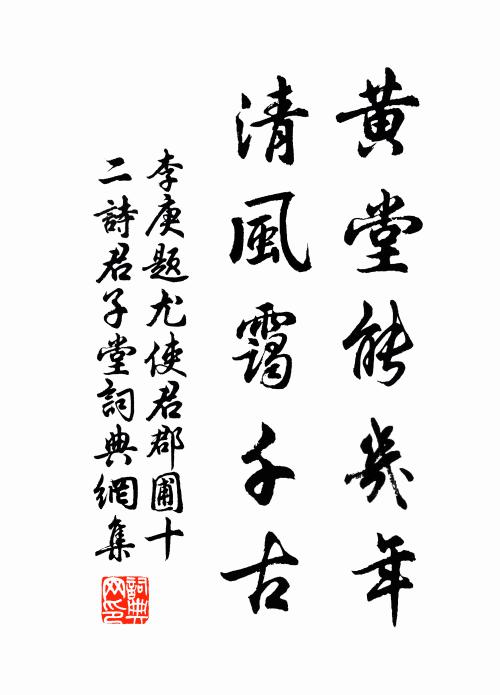 黄堂能幾年
清風靄千古
李庚題尤使君郡圃十
二詩君子堂詞典網集
詞典网印